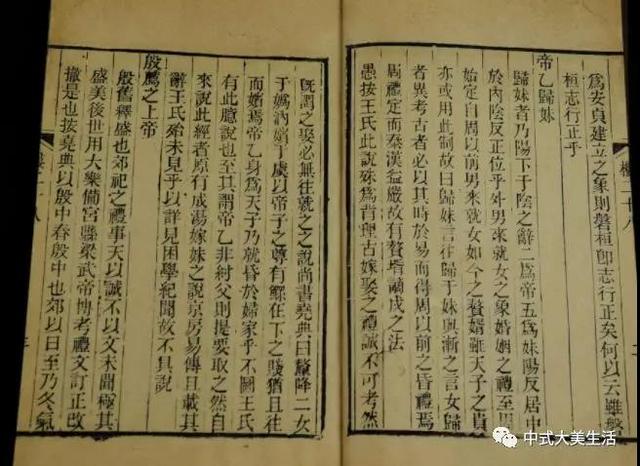 為安貞建立之象則磐桓卽志行正矣何以云雖磐
桓志行正乎
帝乙歸妹
歸妹者乃陽下于陰之辭二爲帝五爲妹陽反居中
於內陰反正位乎外男來就女之象婚姻之禮至周
始定自周以前男來就女如今之贅婿雖天子之貴
亦或用此制故曰歸妹言往歸于妹與漸之言女歸
者異考古者必以其時於易而得周以前之昏禮焉
周禮定而秦漢益嚴故有贅壻謫戍之法
愚按王氏此說殊爲背理古嫁娶之禮誠不可考然
旣謂之娶必無往就之之說尚書堯典曰釐降二女
于嬀汭嬪于虞以帝子之尊有鰥在下之賤猶且往
而嬪焉帝乙身爲天子乃就昏於婦家乎不圖王氏
有此臆說也至其謂帝乙非紂父則提要取之然自
來說此經者原有成湯嫁妹之說京房易傳且載其
辭王氏殆未見乎以詳見困學紀聞故不具說
殷薦之上帝
殷舊釋盛也郊祀之禮事天以誠不以文未聞極其
盛美後世用大樂備宮縣梁武帝博考禮文訂正改
撤是也按堯典以殷中春殷中也郊以日至乃冬氣
中式大美生活